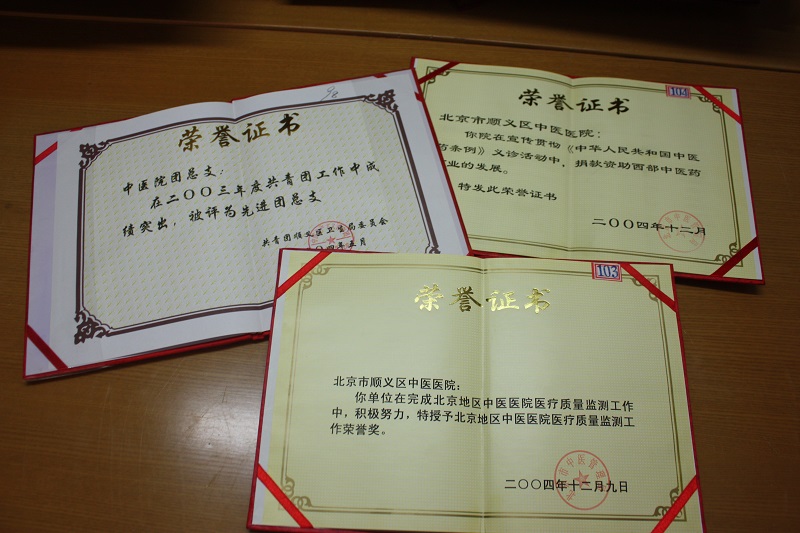 98
荣誉证书
中医院团总支：
在二〇〇三年度共青团工作中成
绩突出，被评为先进团总支
共青团顺义区卫生局委员会
〇四年五月
104
荣誉证书
北京市顺义区中医医院：
你院在宣传贯彻《中华人民共和国中医
药条例》义诊活动中，捐款资助西部中医药
业的发展。
特发此荣誉证书
二〇〇四年十二月
103
荣誉证书
北京市顺义区中医医院：
你单位在完成北京地区中医医院医疗质量监测工作
中，积极努力，特授予北京地区中医医院医疗质量监测工
作荣誉奖。
二〇〇四年十二月九日